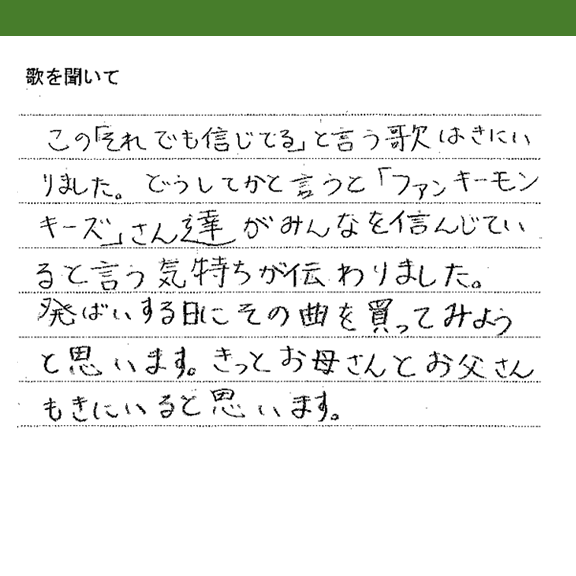 歌を聞いて
この「それでも信じてる」と言う歌はきにい
りました。どうしてかと言うと「ファンキーモン
キーズ」さん達がみんなを信んじてい
ると言う気持ちが伝わりました。
発ばいする日にその曲を買ってみよう
と思います。きっとお母さんとお父さん
もきにいると思います。